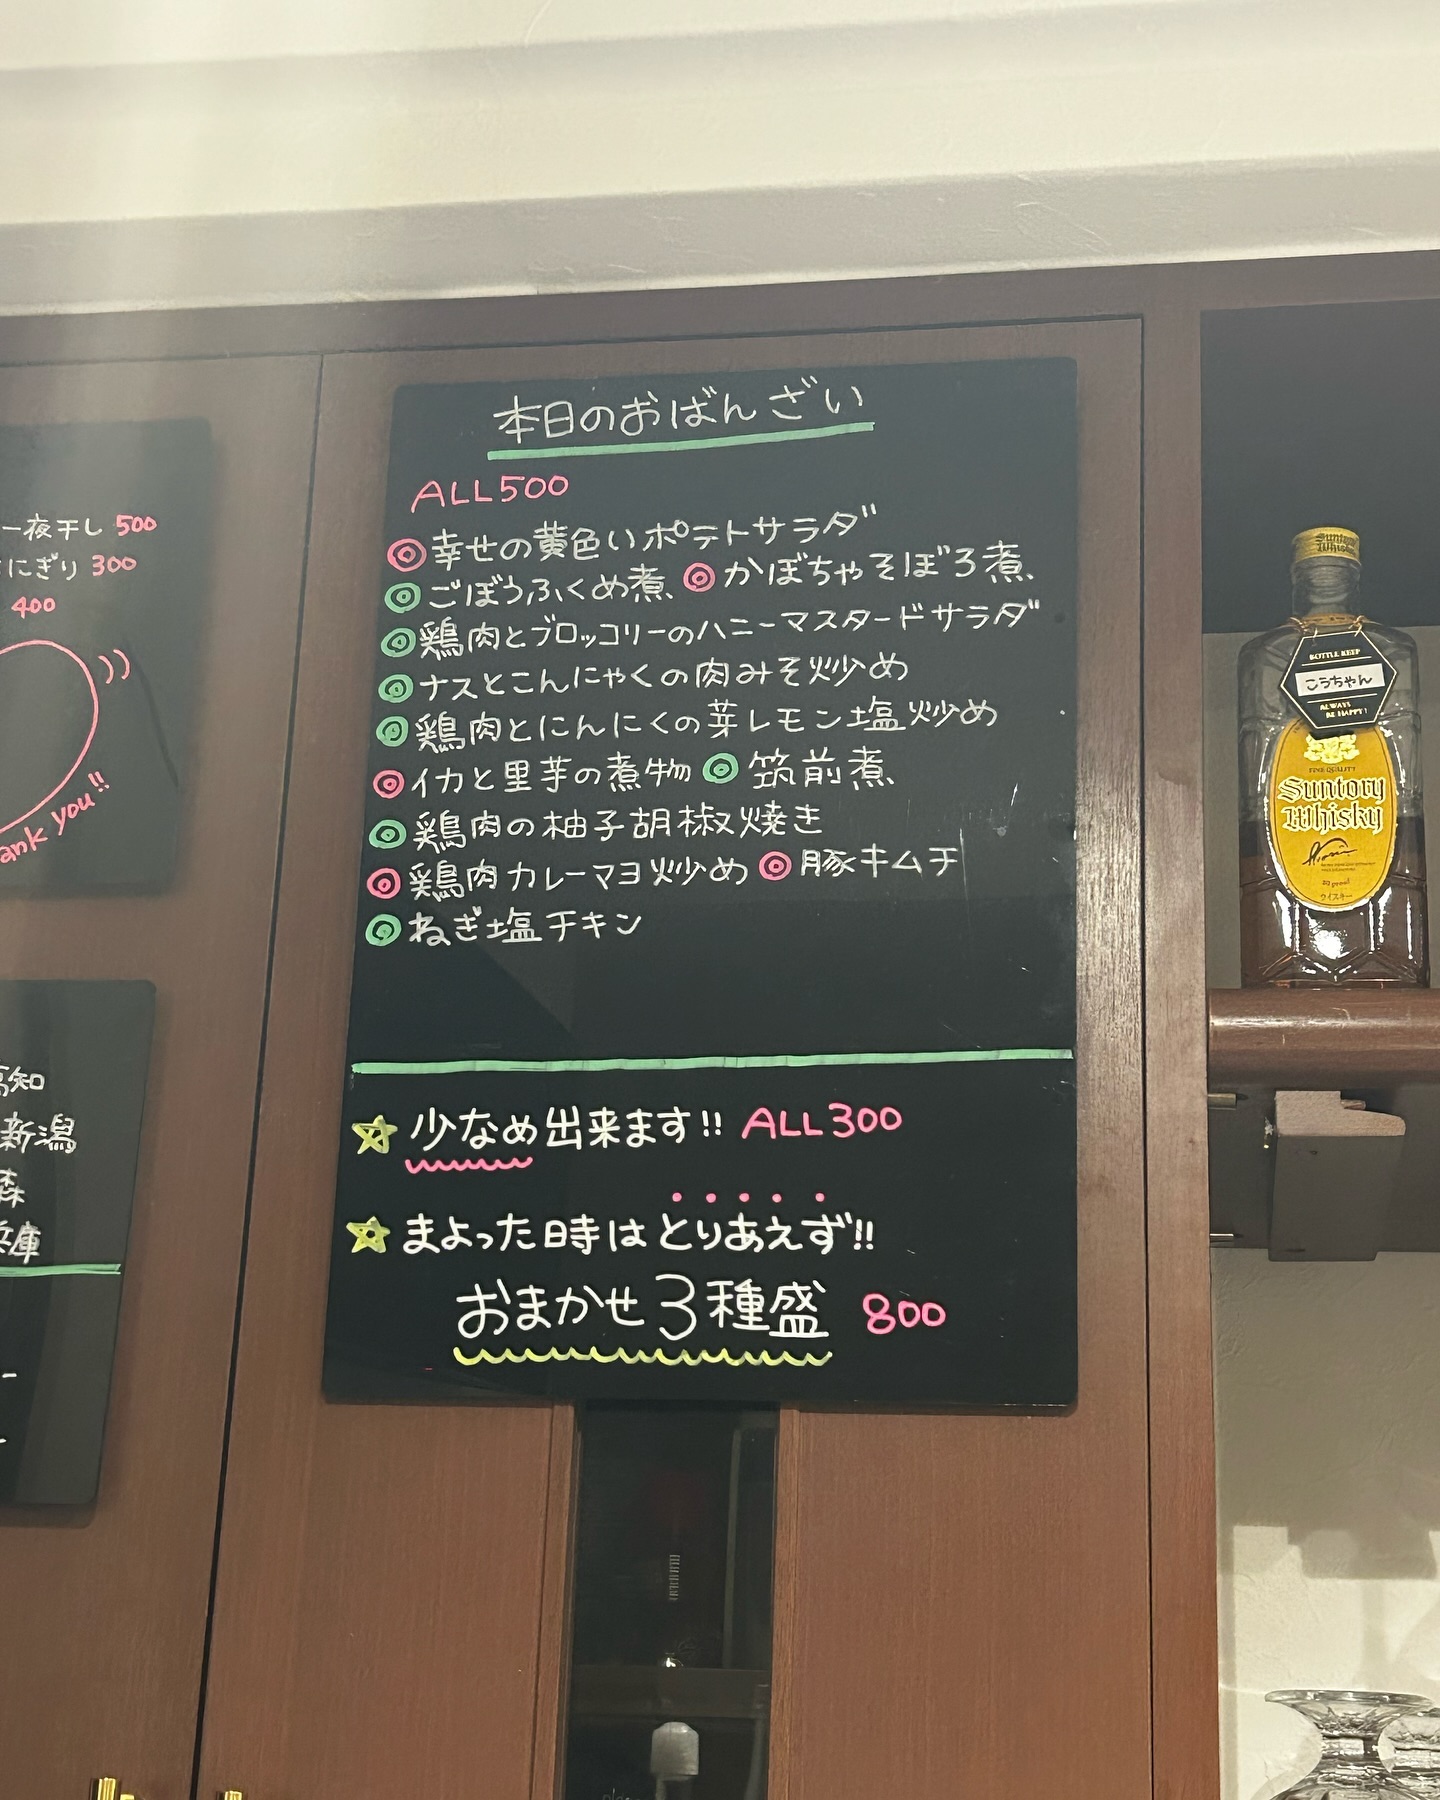 本日のおばんざい
ALL500
◎幸せの黄色いポテトサラダ
◎ごぼうふくめ煮 ◎かぼちゃそぼろ煮
◎鶏肉とブロッコリーのハニーマスタードサラダ
◎ナスとこんにゃくの肉みそ炒め
◎鶏肉とにんにくの芽レモン塩炒め
◎イカと里芋の煮物 ◎筑前煮
◎鶏肉の柚子胡椒焼き
◎鶏肉カレーマヨ炒め ◎豚キムチ
◎ねぎ塩チキン
☆少なめ出来ます!! ALL300
☆まよった時はとりあえず!!
おまかせ3種盛 800
一夜干し 500
にぎり 300
400
ank you!!
知
新潟
森
庫
Suntory
Whisky
BOTTLE KEEP
こうちゃん
ALWAYS
BE HAPPY!
FINE QUALITY
Suntory
Whisky
ウイスキー